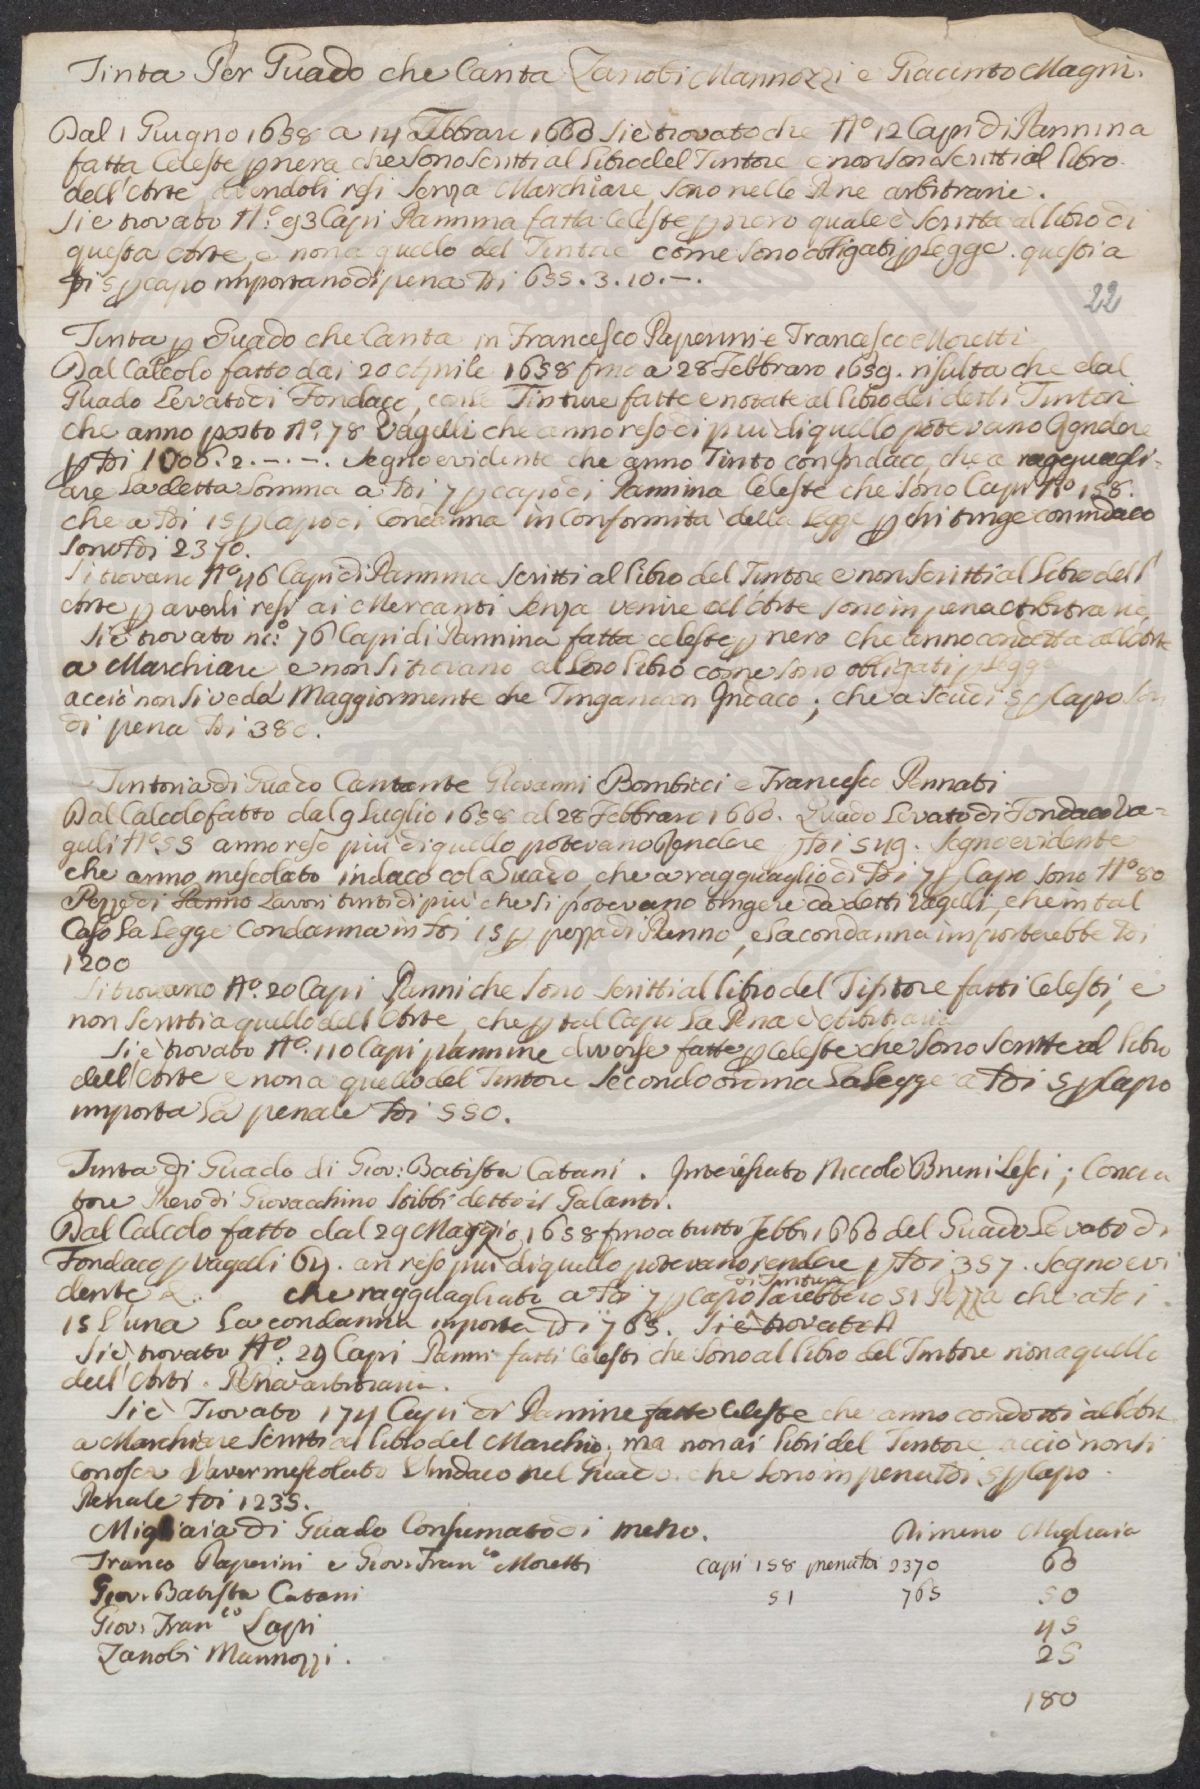 Tinta Per Guado che Canta Zanobi Mannozzi e Giacinto Magni.
Dal 1 Giugno 1658 a 14 Febbraro 1660 Si è trovato che Nº 12 Capi di Pannina
fatta Celeste p nera che sono scritti al libro del Tintore e non sono scritti al libro
dell'Arte avendoli resi senza Marchiare, sono nelle Pene arbitrarie.
Si è trovato Nº. 93 Capi Pannina fatta Celeste p nero quale è scritta al libro di
questa Arte, e non a quello del Tintore come sono obligati p Legge. questi a
p capo importano di pena 655.3.10.–.
22
Tinta p Guado che Canta in Francesco Paperini e Francesco Moretti
Dal Calcolo fatto da i 20 Aprile 1658 fino a 28 Febbraro 1659. risulta che dal
Guado Levato di Fondaco, colle Tinture fatte e notate al libro dei detti Tintori
che anno posto Nº. 78 Vagelli che anno reso di più di quello potevano Rendere
p 1106.2.–.–. segno evidente che anno Tinto con Indaco, che a ragguagli-
are La detta Somma a 7 p capo di Pannina Celeste che sono Capi Nº 158.
che a 15 p Capo di Condanna in Conformità della Legge p chi tinge con indaco
sono 2370.
Si trovano Nº 46 Capi di Pannina scritti al libro del Tintore e non scritti al Libro dell'
Arte p averli resi ai Mercanti senza venire all'Arte sono in pena Arbitraria,
Si è trovato nº. 76 Capi di Pannina fatta celeste p nero che anno condotta all'Arte
a Marchiare, e non si trovano al loro libro come sono obligati p Legge
acciò non si veda Maggiormente che Tingano con Indaco; che a scudi 5 p Capo son
di pena 380.
Tintoria di Guado Cantante Giovanni Bombicci e Francesco Pennati
Dal Calcolo fatto dal 9 Luglio 1658 al 28 Febbraro 1660. Guado Levato di Fondaco Va=
gelli Nº 55 anno reso più di quello potevano Rendere p 549. Segno evidente
che anno mescolato indaco col Guado, che a ragguaglio di 7 p Capo sono Nº 80
Pezze di Panno Lavori tinti di più che si potevano tingere da detti Vagelli, che in tal
Caso La Legge Condanna in 15 p pezza di Panno, e la condanna importerebbe
1200
Si trovano Nº. 20 Capi Panni che sono scritti al libro del Tintore fatti Celesti, e
non scritti a quello dell'Arte, che p tal Capo La Pena è Arbitraria
Si è trovato Nº. 110 Capi pannine diverse fatte p Celeste che sono scritte al libro
dell'Arte e non a quello del Tintore secondo ordina La Legge a 5 p Capo
importa La penale 550.
Tinta di Guado di Giov: Batista Catani. Interessato Niccolò Brunileschi; Concia
tore Piero di Giovacchino Stibbi detto il Galanti.
Dal Calcolo fatto dal 29 Maggio 1658 fino a tutto Febb. 1660 del Guado Levato di
Fondaco p Vagelli 64. an reso più di quello potevano rendere p 357. Segno evi
dente &. che ragguagliati a 7 p capo di tintura sarebbero 51 Pezza che a
15 L'una La condanna importa 765. Si è trovato N
Si è trovato Nº. 24 Capi Panni fatti Celesti che sono al libro del Tintore non a quello
dell'Arti. Pena arbitraria.
Si è Trovato 174 Capi di Pannine fatte Celeste che anno condotti all'Arte
a Marchiare scritti al libro del Marchio, ma non ai libri del Tintore acciò non si
conosca L'aver mescolato L'indaco nel Guado. che sono in pena 5 p Capo
Penale 1235.
Migliaia di Guado Consumato di meno. Di meno Migliaia
Franco Paperini e Giov: Franco Moretti Capi 158 penali 2370 60
Giov. Batista Catani 51 765 50
Giov: Franco Lapi 45
Zanobi Mannozzi. 25
180